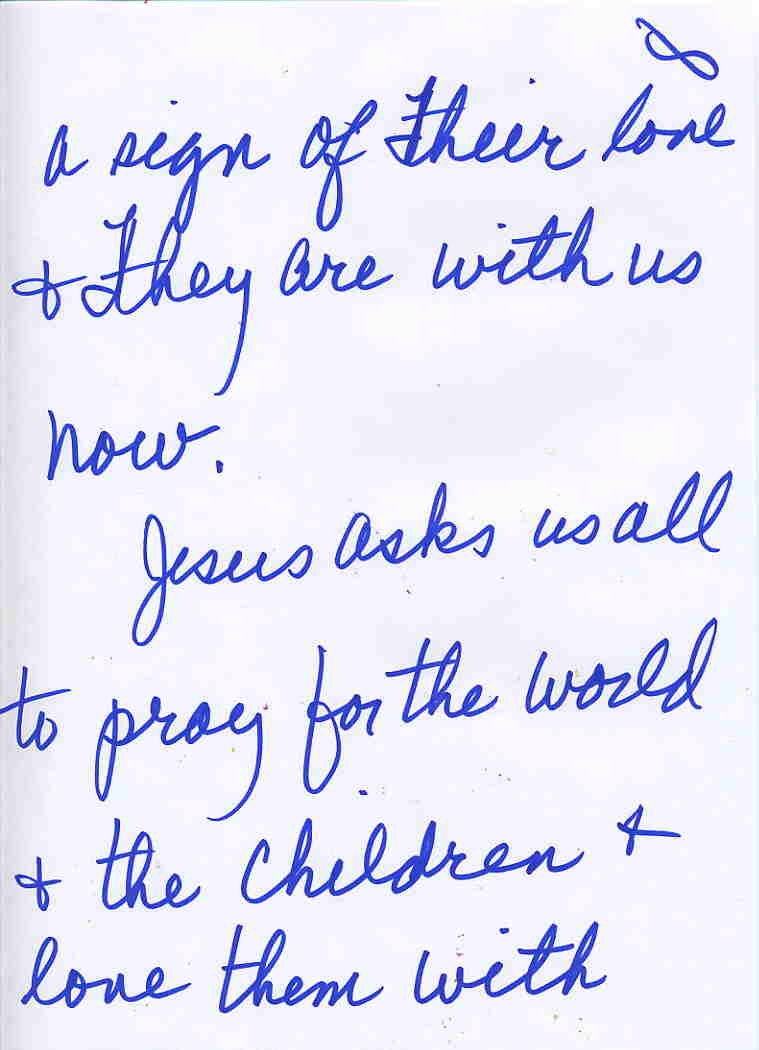 8
a sign of Their love
+ They are with us
now.
Jesus asks us all
to pray for the world
+ the children +
love them with